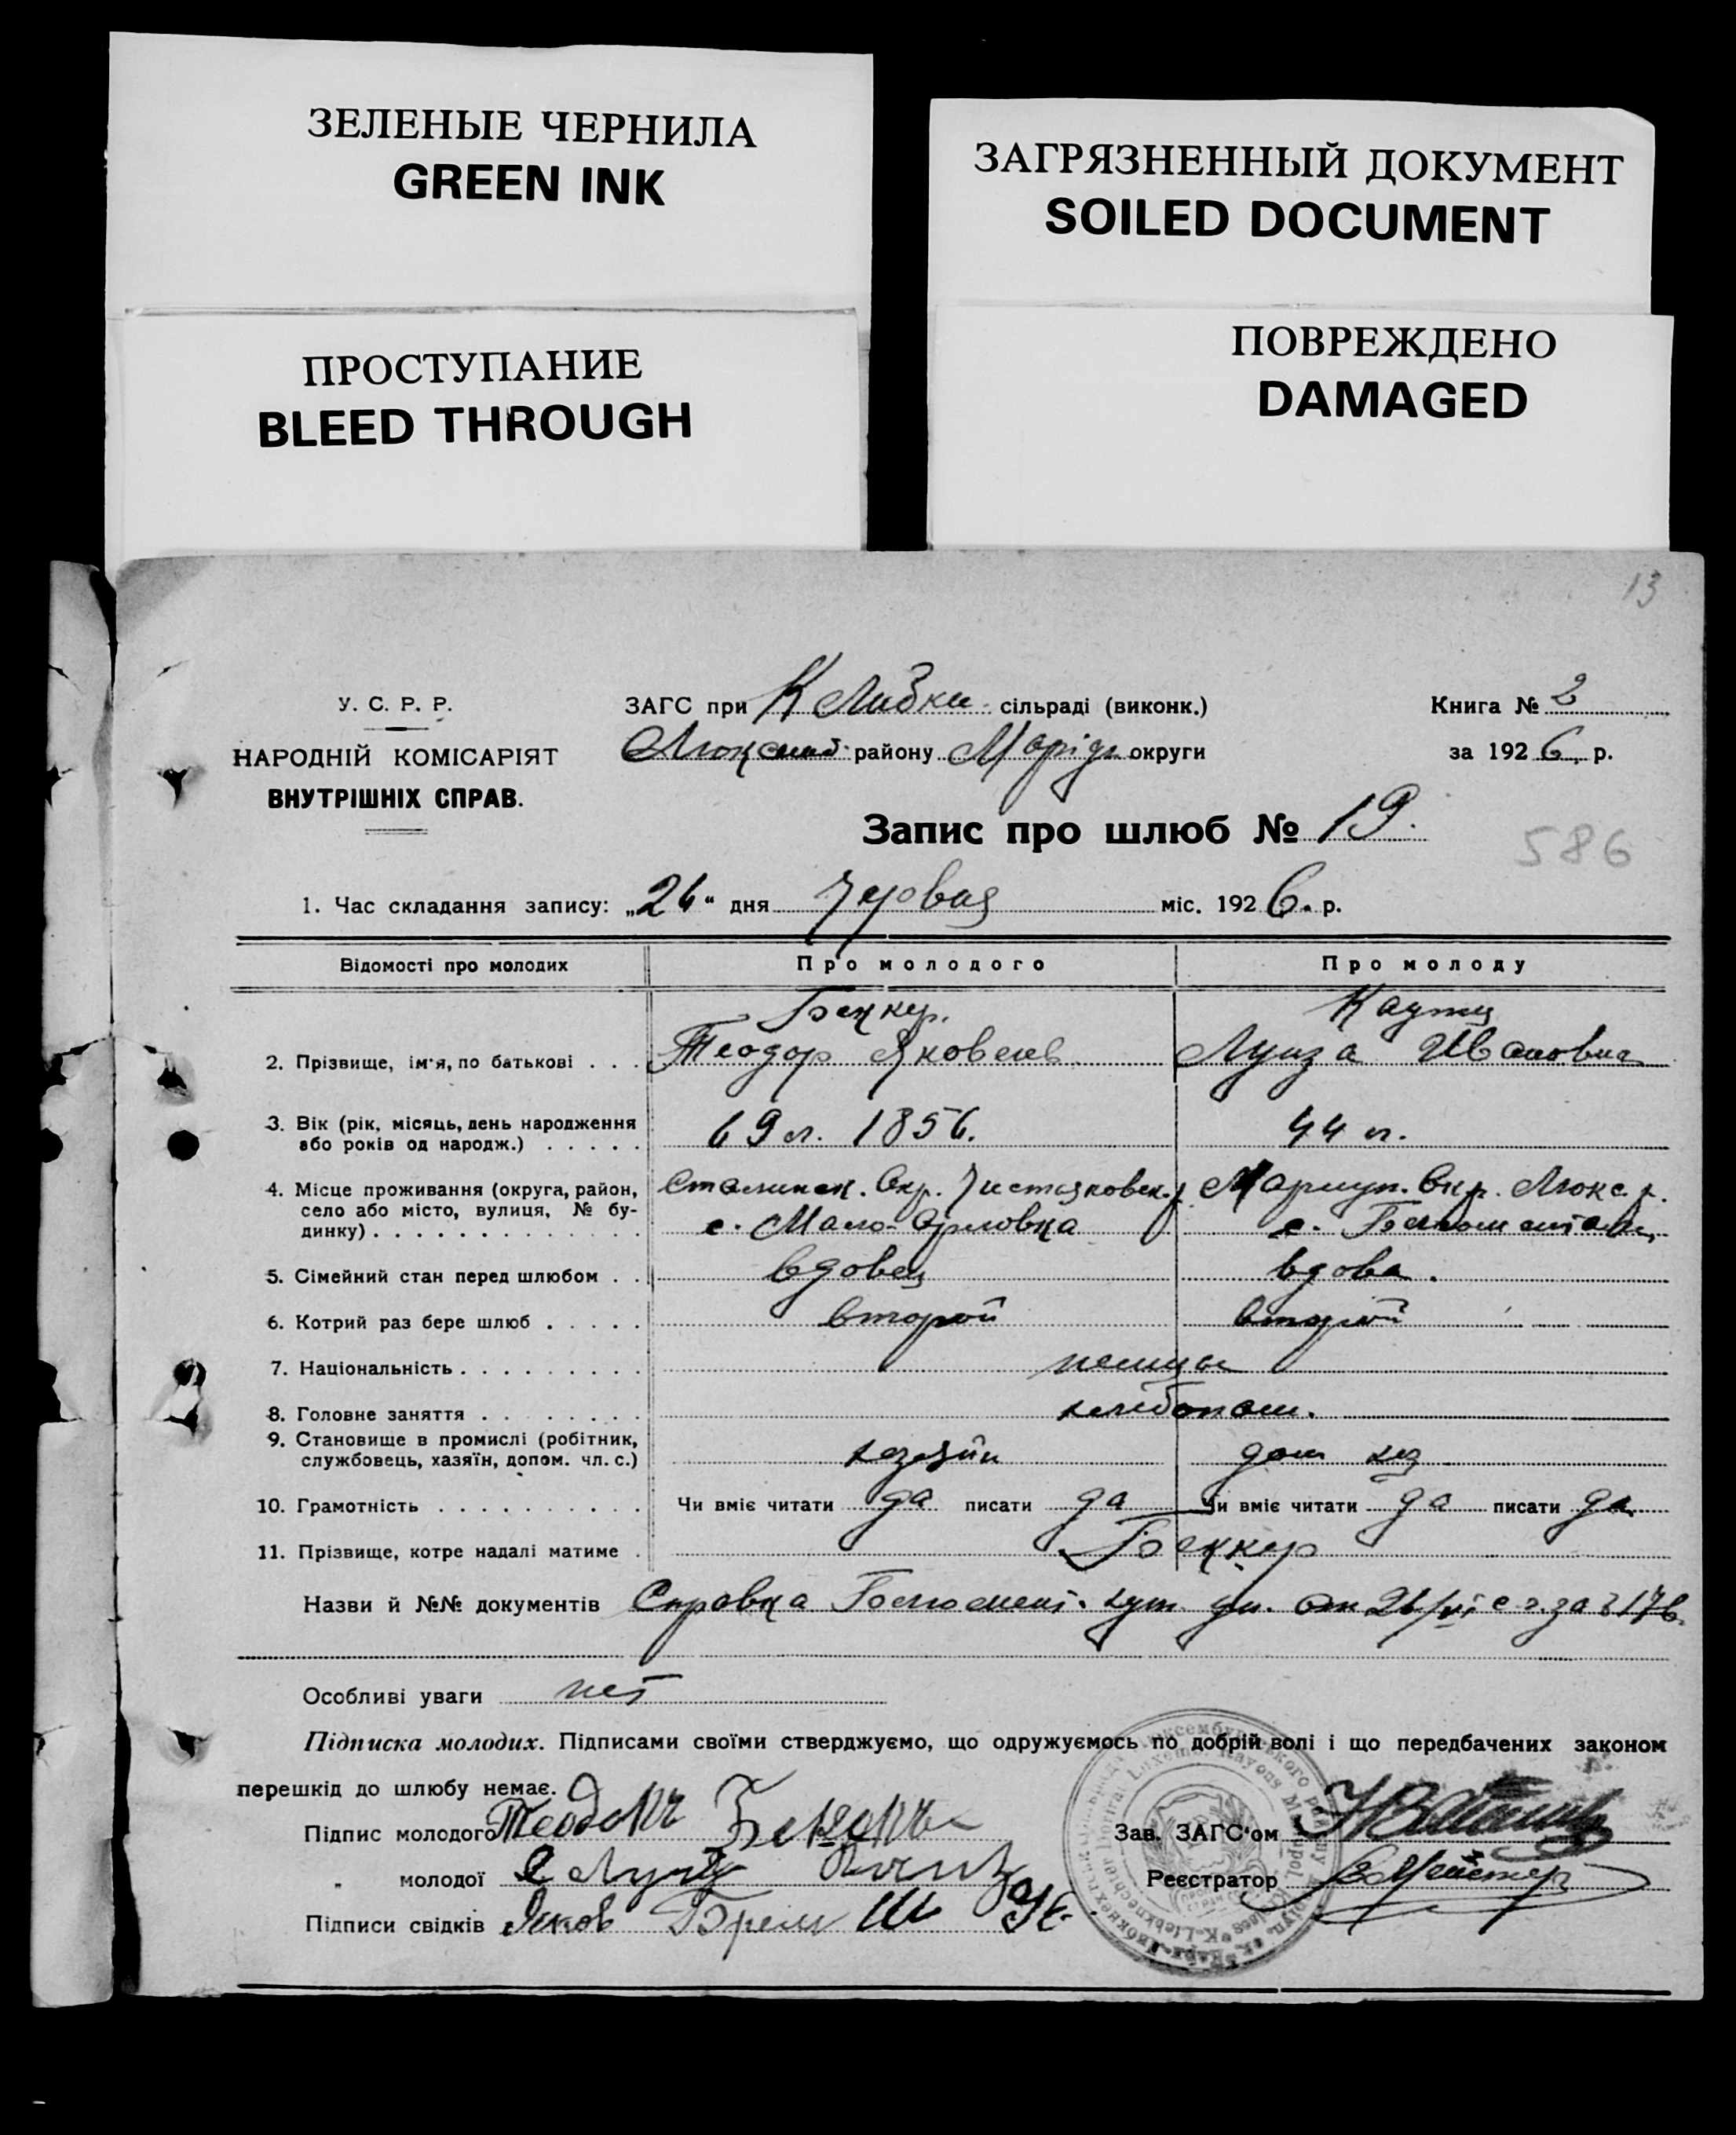 ЗЕЛЕНЫЕ ЧЕРНИЛА
GREEN INK
ЗАГРЯЗНЕННЫЙ ДОКУМЕНТ
SOILED DOCUMENT
ПРОСТУПАНИЕ
BLEED THROUGH
ПОВРЕЖДЕНО
DAMAGED
13
У. С. Р. Р.
НАРОДНІЙ КОМІСАРІЯТ
ВНУТРІШНІХ СПРАВ.
ЗАГС при К Либкн. сільраді (виконк.)
району Маріуп. округи
Книга № 2
за 1926 р.
Запис про шлюб № 19.
586
1. Час складання запису: „26“ дня Червця міс. 1926. р.
Відомості про молодих Про молодого Про молоду
Беккер. Каутц
2. Прізвище, ім'я, по батькові . . . Теодор Яковлев Луиза Ивановна
3. Вік (рік, місяць, день народження 69 л. 1856. 44 л.
або років од народж.) . . . . .
4. Місце проживання (округа, район, Сталинск. Окр. Чистяковск. р. Мариуп. Окр. Люкс. р.
село або місто, вулиця, № бу- с. Мало-Орловка с.
динку) . . . . . . . . . . . . .
5. Сімейний стан перед шлюбом . . вдовец вдова.
6. Котрий раз бере шлюб . . . . . второй второй
7. Національність . . . . . . . . . немцы
8. Головне заняття . . . . . . . . хлебопаш.
9. Становище в промислі (робітник, хозяин дом хоз
службовець, хазяїн, допом. чл. с.)
10. Грамотність . . . . . . . . . . Чи вміє читати да писати да Чи вміє читати да писати да
11. Прізвище, котре надалі матиме . Беккер
Назви й №№ документів Справка от 26/VI с. г. за 176
Особливі уваги нет
Підписка молодих. Підписами своїми стверджуємо, що одружуємось по добрій волі і що передбачених законом
перешкід до шлюбу немає.
Підпис молодого Теодокъ
Зав. ЗАГС'ом
„ молодої Луиза
Реєстратор
Підписи свідків Яков